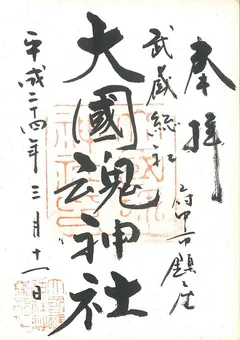 奉拝
武蔵総社
府中市鎮座
大國魂神社
平成二十四年三月十一日